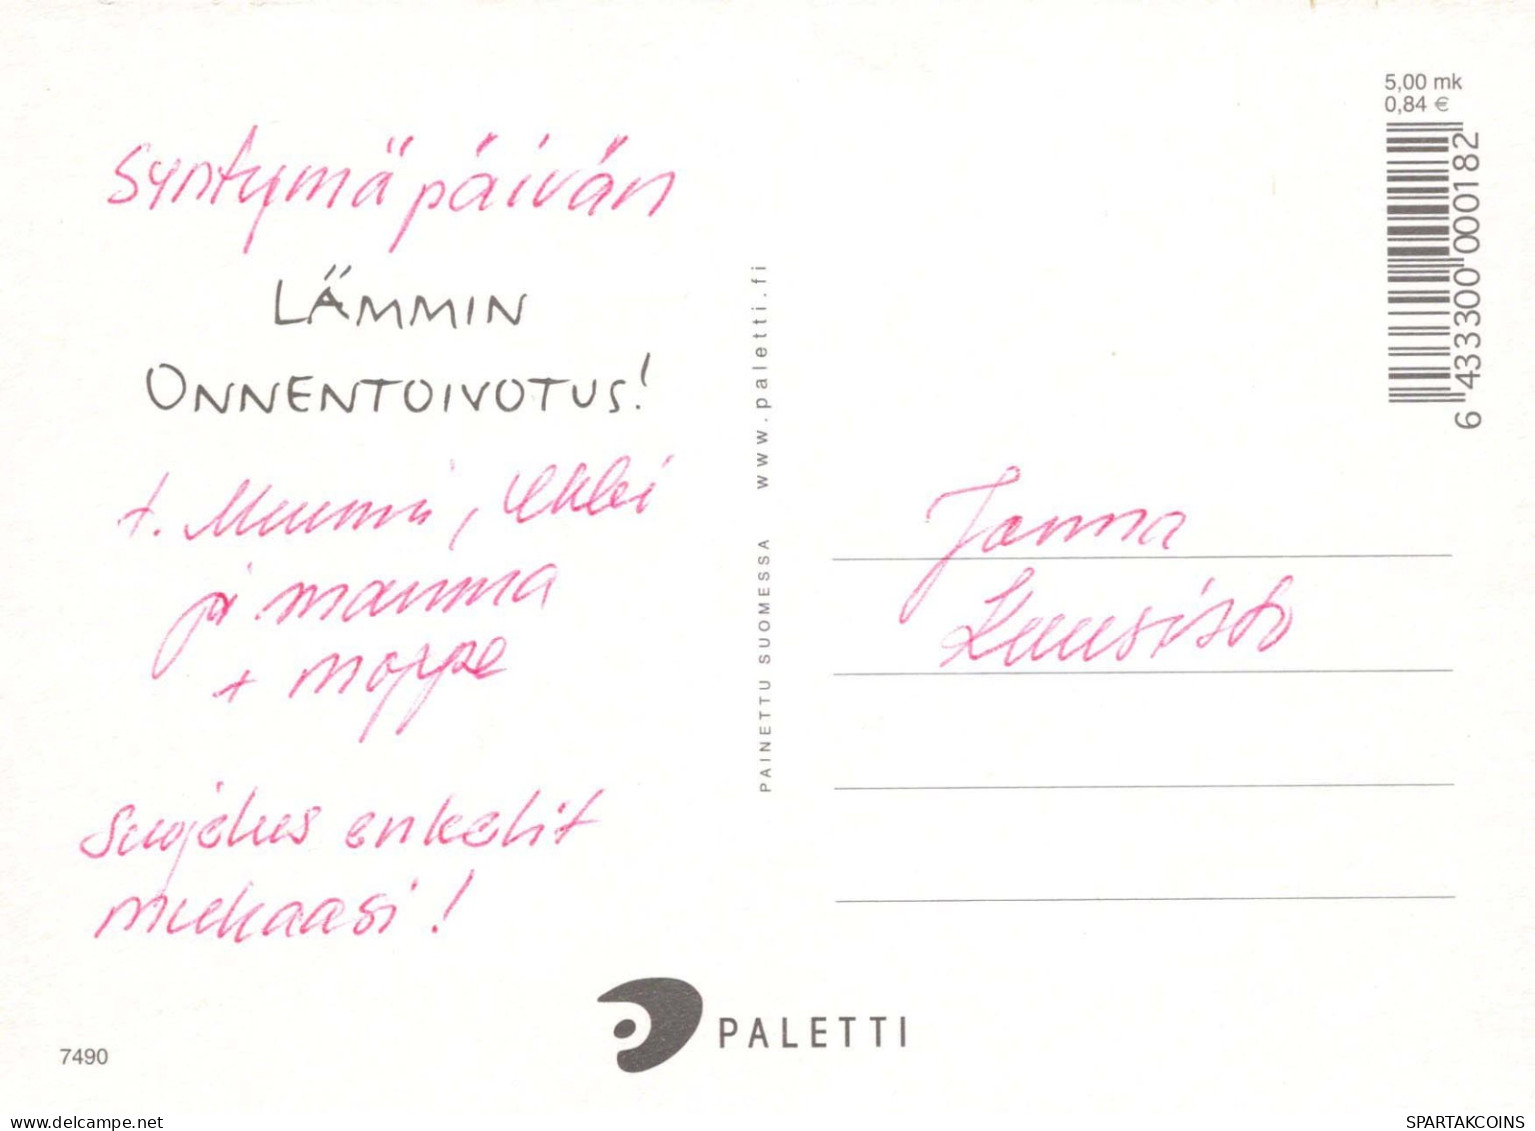 Syntymäpäivän
LÄMMIN
ONNENTOIVOTUS!
t. Mummi, Ukki
ja mamma
+ moppe
Suojelus enkelit
mukaasi!
7490
PALETTI
PAINETTU SUOMESSA www.paletti.fi
5,00 mk
0,84 €
6 433300 000182
Janna
Kuusisto
delcampe.net
SPARTAKCOINS